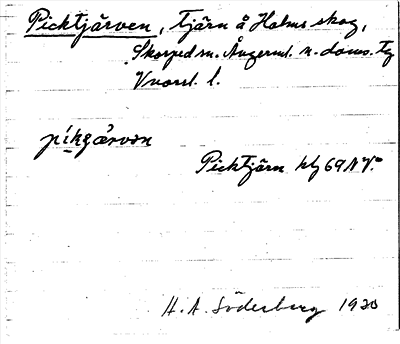 Picktjärven, tjärn å Holms skog,
Skorped sn. Ångerml. n. doms. tg
Vnorrl. l.
Picktjärn kbl 69 N.V.
H. A. Söderberg 1930